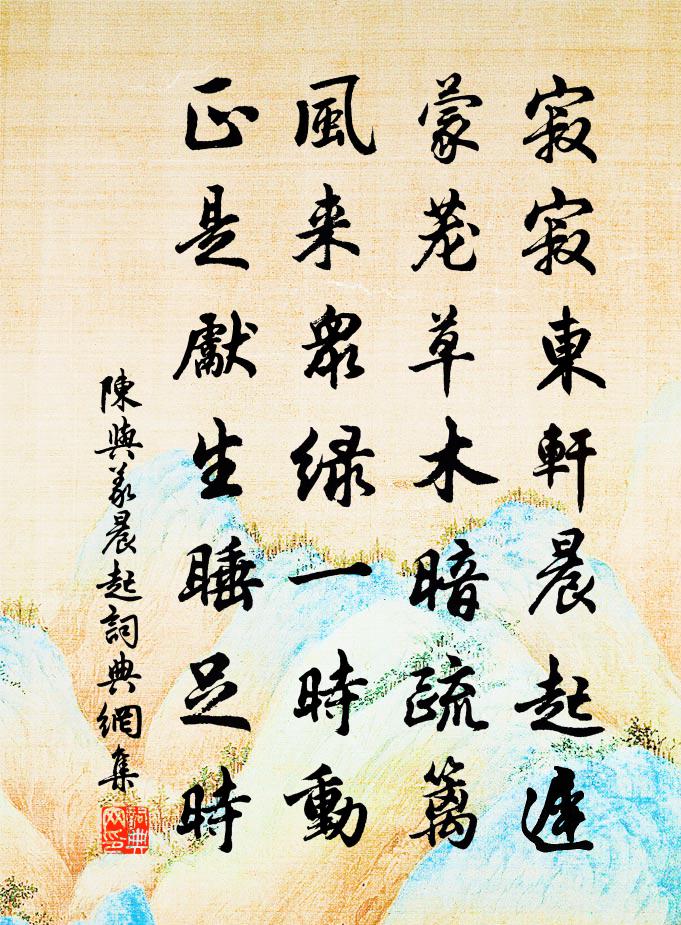 寂寂東軒晨起遲
蒙茏草木暗疏篱
風来眾緑一時動
正是獻生睡足時
陳與義晨起詞典網集
詞典网印